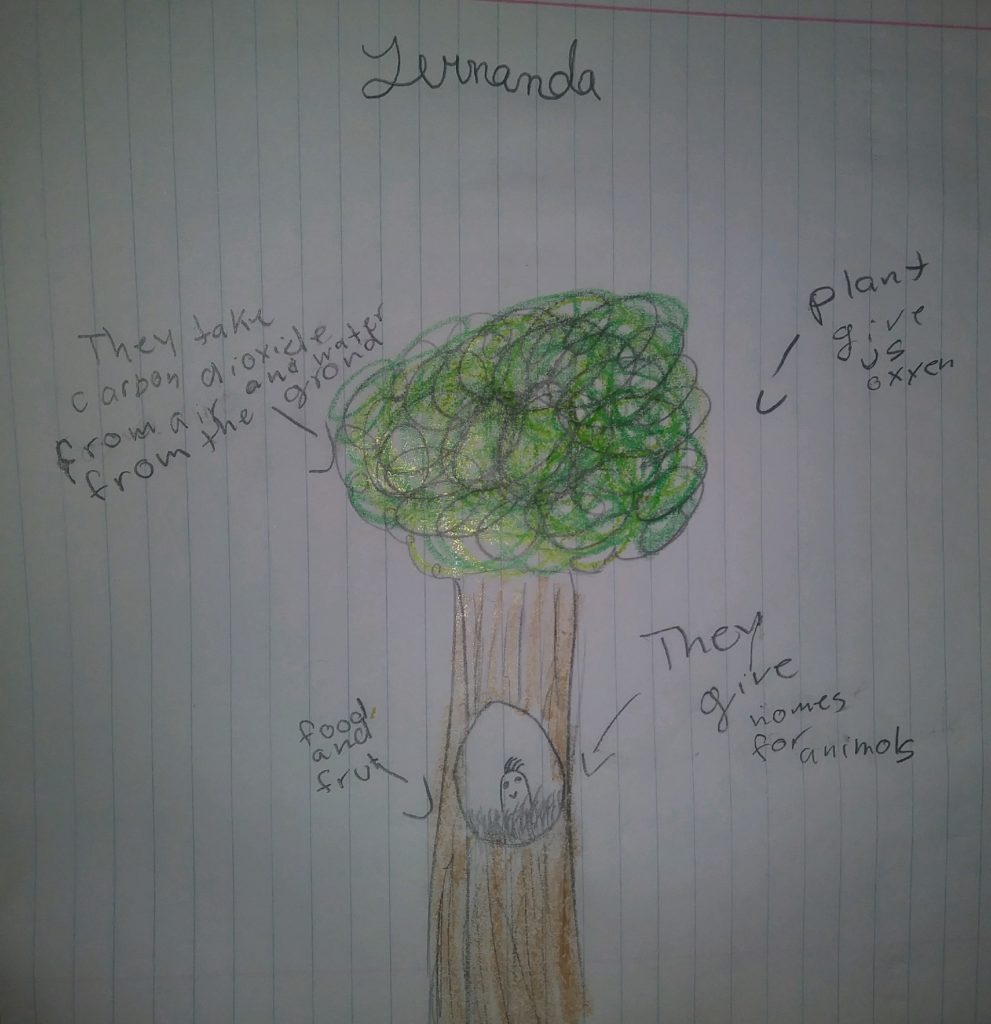 Fernanda
They take
carbon dioxide
from air and water
from the grond
plant
give
us
oxxen
They
give
homes
for animals
food
and
frut